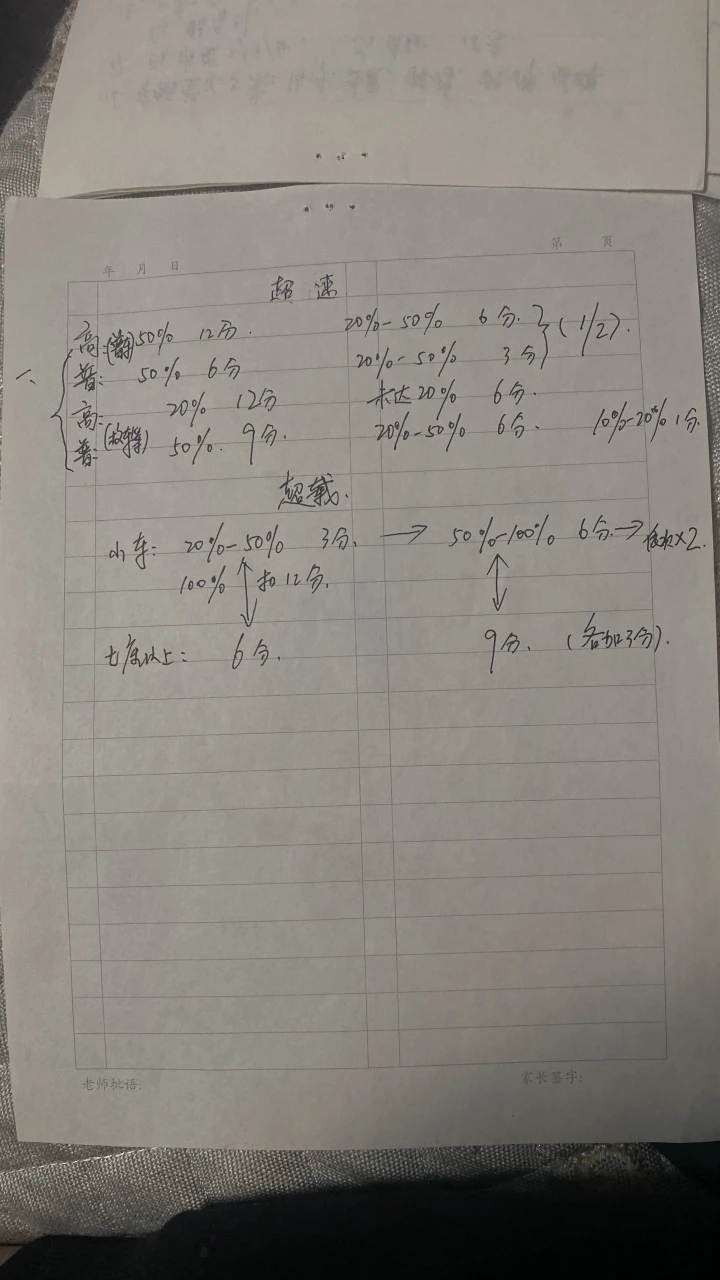 年 月 日 第 页
超速
一、
高: 50% 12分. 20%-50% 6分. } (1/2).
普: 50% 6分 20%-50% 3分
高: 20% 12分 未达20% 6分.
普: 50%. 9分. 20%-50% 6分. 10%-20% 1分.
超载.
小车: 20%-50% 3分. → 50%-100% 6分 → ×2.
100% ↕ 扣12分. ↕
七座以上: 6分. 9分. (各加3分).
老师批语: 家长签字: